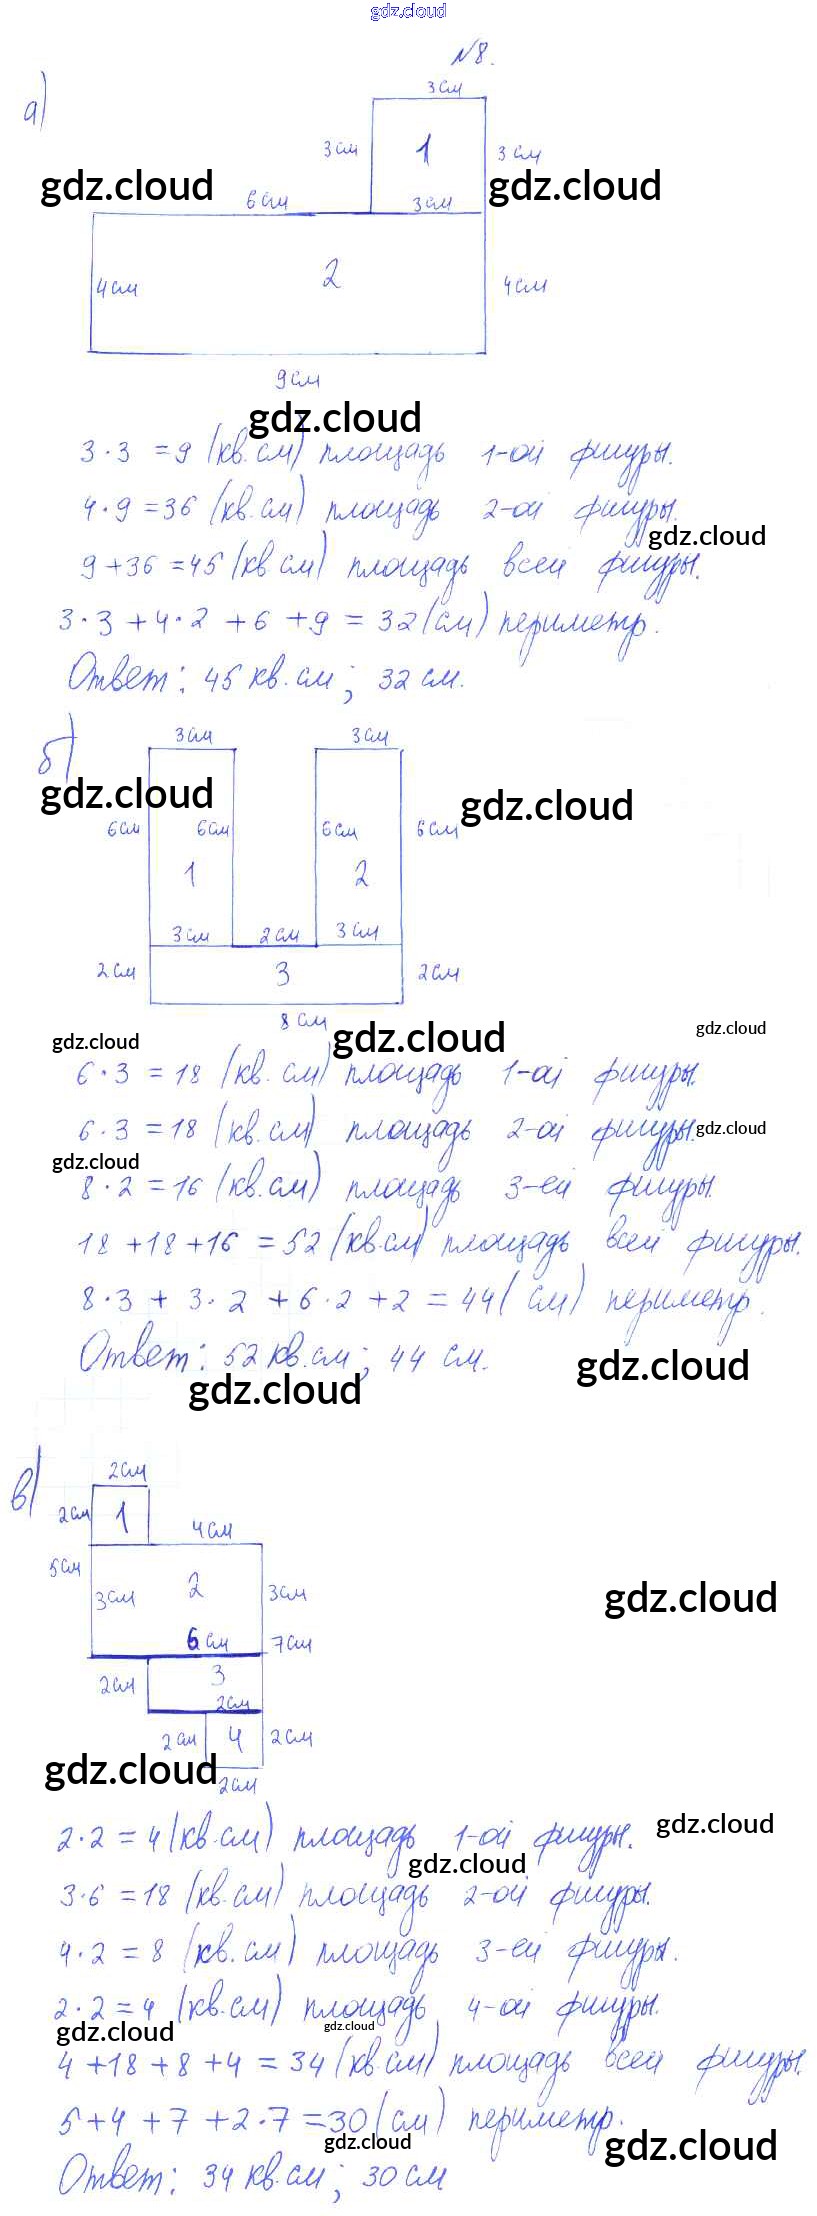 gdz.cloud
№8.
а)
3см
3см 1 3см
gdz.cloud gdz.cloud
6см 3см
4см 2 4см
9см
gdz.cloud
3·3 =9 (кв.см) площадь 1-ой фигуры.
4·9 =36 (кв.см) площадь 2-ой фигуры.
gdz.cloud
9+36 =45 (кв см) площадь всей фигуры.
3·3 +4·2 +6 +9 = 32 (см) периметр.
Ответ: 45 кв.см; 32 см.
б)
3см 3см
gdz.cloud gdz.cloud
6см 6см 6см 6см
1 2
3см 2см 3см
2см 3 2см
8 см
gdz.cloud gdz.cloud gdz.cloud
6·3 =18 (кв.см) площадь 1-ой фигуры.
6·3 =18 (кв.см) площадь 2-ой фигуры.
gdz.cloud
gdz.cloud
8·2 =16 (кв.см) площадь 3-ей фигуры.
18 +18+16 =52 (кв.см) площадь всей фигуры.
8·3 + 3·2 +6·2 +2 =44 (см) периметр.
Ответ: 52 кв.см; 44 см.
gdz.cloud
gdz.cloud
в)
2см
2см 1
4см
5см
3см 2 3см
gdz.cloud
6 см 7см
2см 3
2см
2см 4 2см
gdz.cloud
2см
2·2 =4 (кв.см) площадь 1-ой фигуры.
gdz.cloud
gdz.cloud
3·6 =18 (кв.см) площадь 2-ой фигуры.
4·2 =8 (кв.см) площадь 3-ей фигуры.
2·2 =4 (кв.см) площадь 4-ой фигуры.
gdz.cloud gdz.cloud
4 +18 +8 +4 =34 (кв см) площадь всей фигуры.
5+4 +7 +2·7 =30 (см) периметр.
gdz.cloud gdz.cloud
Ответ: 34 кв.см; 30 см